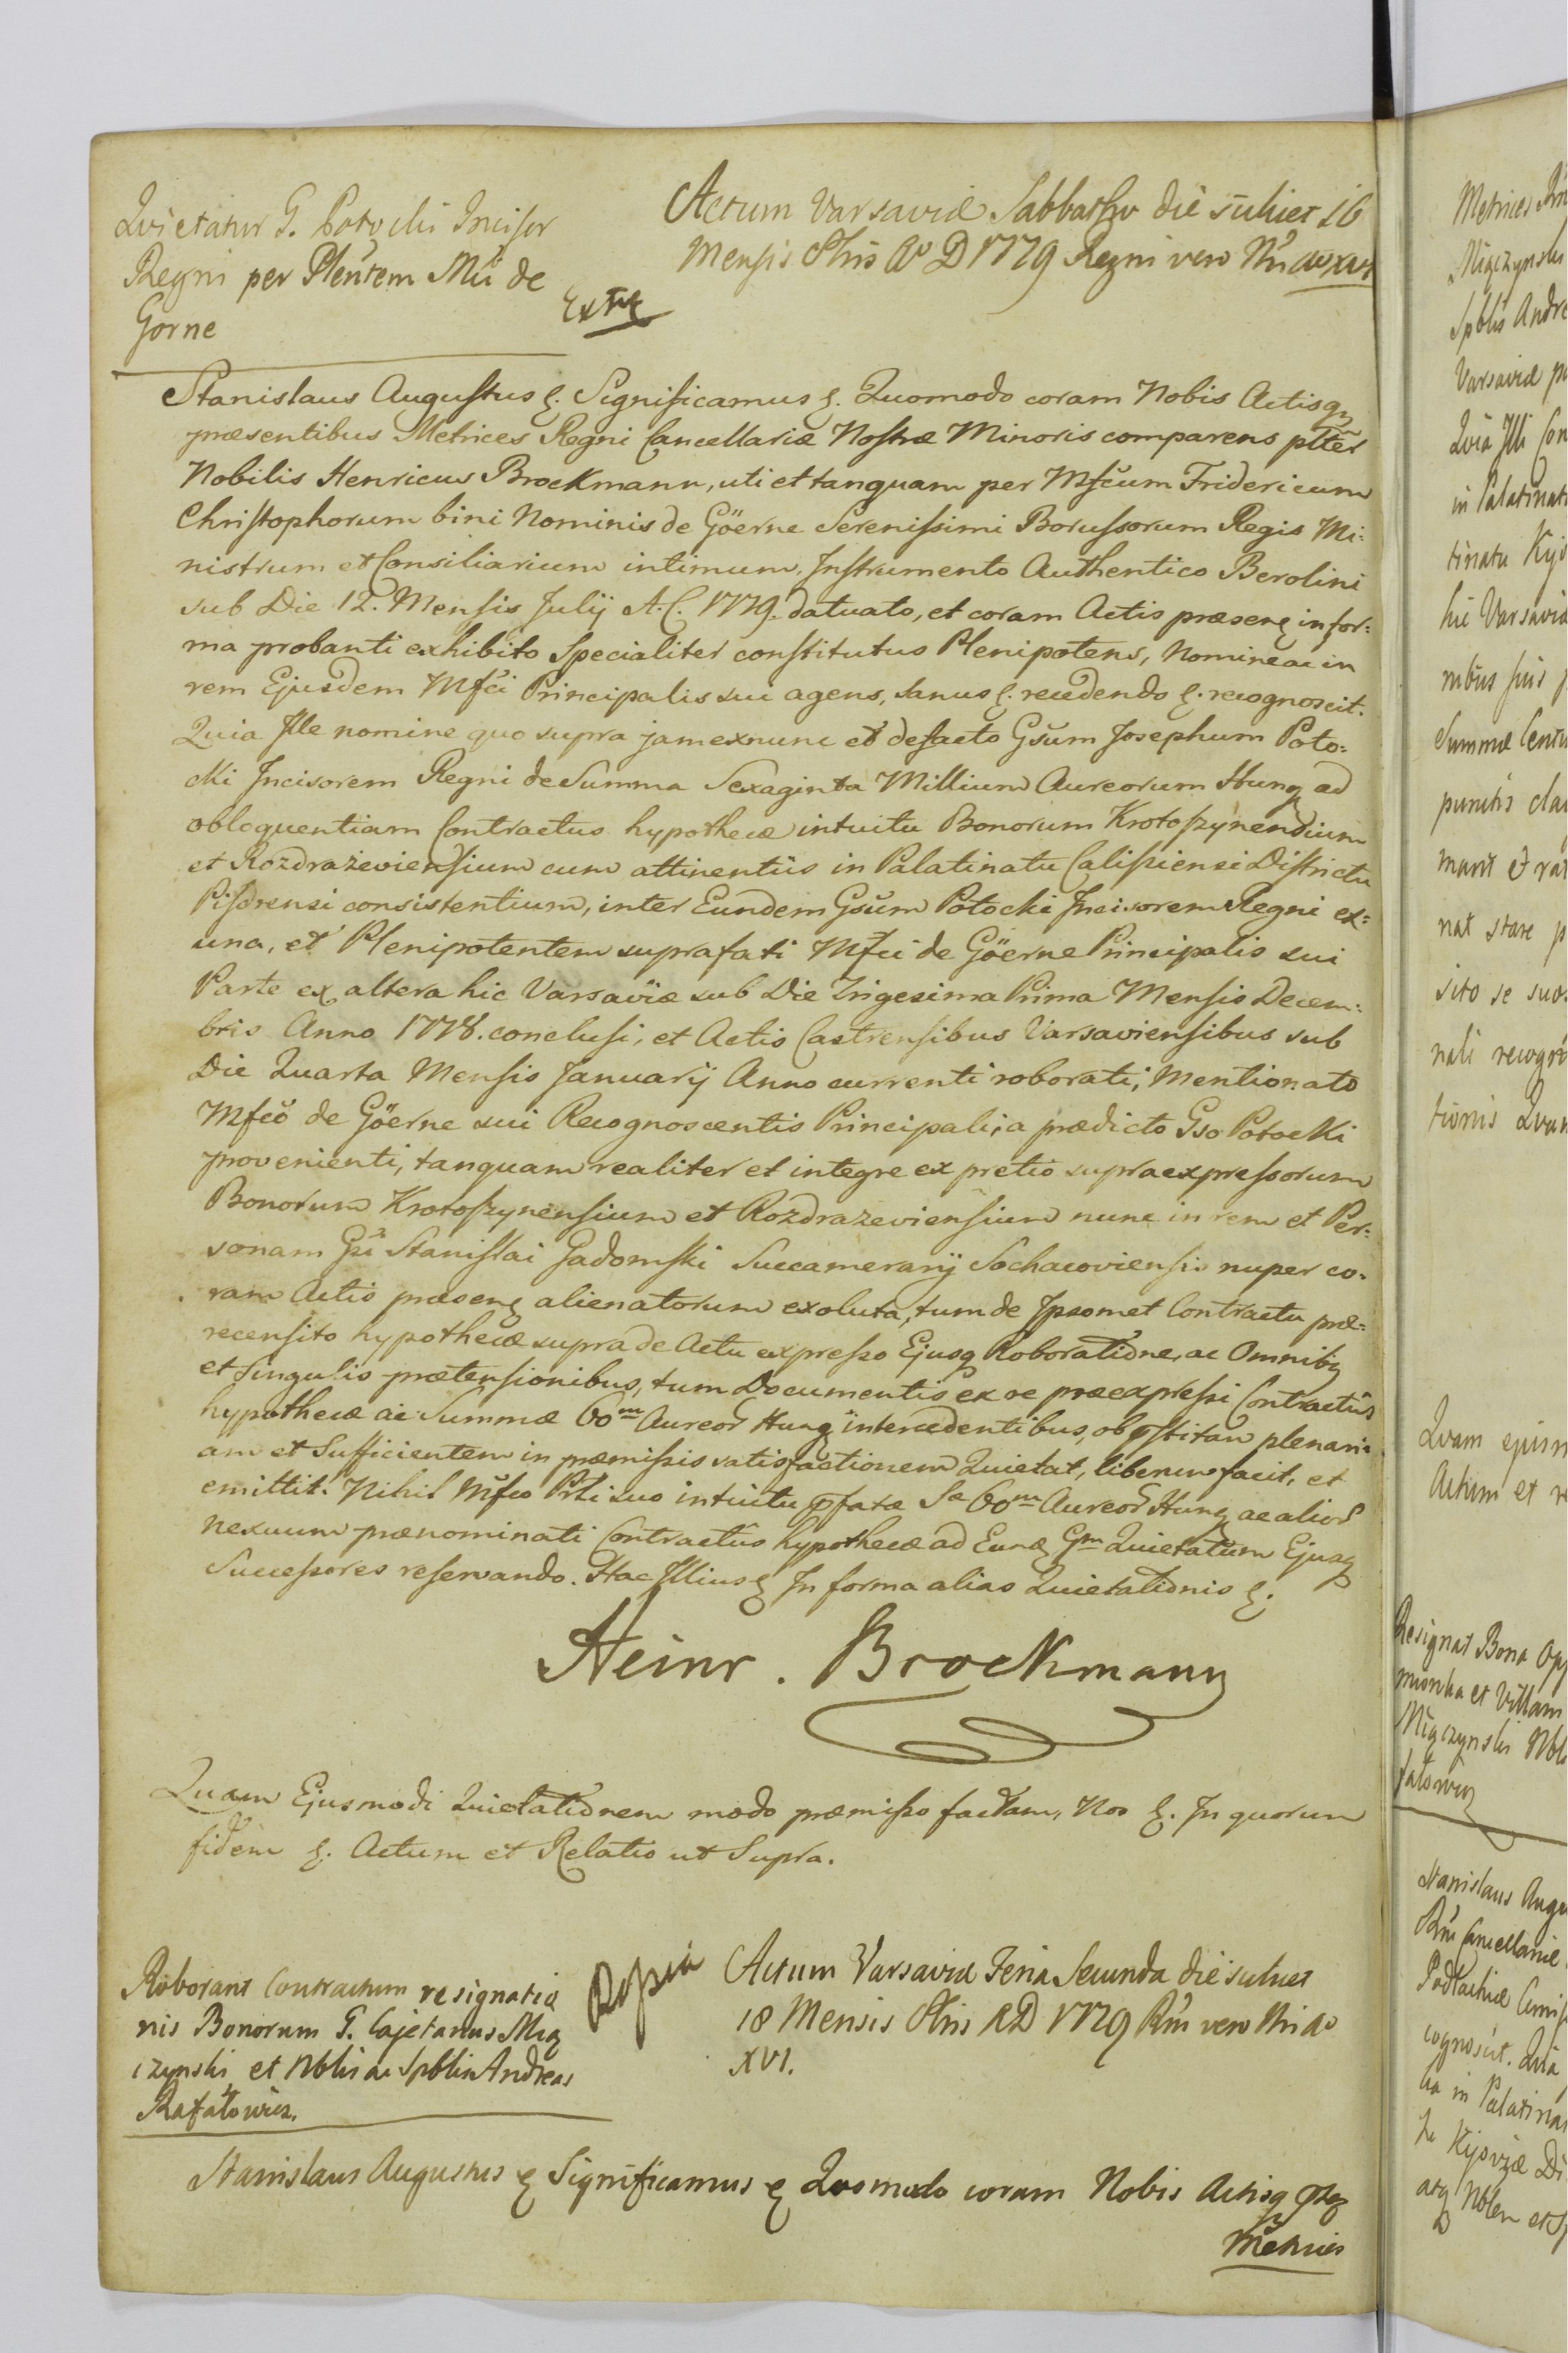 Quietatur G. Potocki Incisor
Regni per Plentem Mci de
Gorne
Extr
Actum Varsaviæ Sabbatho die scilicet 16
Mensis 8bris Ao D 1779 Regni vero Nri ao xvi
Stanislaus Augustus &. Significamus &. Quomodo coram Nobis Actisq
præsentibus Metrices Regni Cancellariæ Nostræ Minoris comparens plter
Nobilis Henricus Brockmann, uti et tanquam per Mfcum Fridericum
Christophorum bini Nominis de Göerne Serenissimi Borussorum Regis Mi:
nistrum et Consiliarium intimum, Instrumento Authentico Berolini
sub Die 12. Mensis Julij A. C. 1779. datuato, et coram Actis præsen in for:
ma probanti exhibito Specialiter constitutus Plenipotens, Nomine ac in
rem Ejusdem Mfci Principalis sui agens, sanus &. recedendo &. recognoscit.
Quia Ille nomine quo supra jam exnunc et defacto Gsum Josephum Poto:
cki Incisorem Regni de Summa Sexaginta Millium Aureorum Hung ad
obloquentiam Contractus hypothecæ intuitu Bonorum Krotoszynensium
et Rozdrażeviensium cum attinentiis in Palatinatu Calisiensi Districtu
Pisdrensi consistentium, inter Eundem Gsum Potocki Incisorem Regni ex:
una, et Plenipotentem suprafati Mfci de Göerne Principalis sui
Parte ex altera hic Varsaviæ sub Die Trigesima Prima Mensis Decem:
bris Anno 1778. conclusi, et Actis Castrensibus Varsaviensibus sub
Die Quarta Mensis Januarij Anno currenti roborati, Mentionato
Mfco de Göerne sui Recognoscentis Principali, a prædicto Gso Potocki
provenienti, tanquam realiter et integre ex pretio supraexpressorum
Bonorum Krotoszynensium et Rozdrazeviensium nunc in rem et Per:
sonam Gsi Stanislai Gadomski Succamerarij Sochacoviensis nuper co:
ram Actis præsen alienatorum exoluta, tum de Ipsomet Contractu præ:
recensito hypothecæ supra de Actu expresso Ejusq Roboratione, ac Omnibq
et Singulis prætensionibus, tum Documentis ex re præexpressi Contractûs
hypothecæ ac Summæ 60m Aureor Hung intercedentibus, ob pstitam plenari:
am et Sufficientem in præmissis satisfactionem Quietat, liberum facit, et
emittit. Nihil Mfco Prli suo intuitu pfatæ Sæ 60m Aureor Hung ac alior
nexuum prænominati Contractûs hypothecæ ad Eund Gm Quietatum Ejusq
Successores reservando. Hac Illius & In forma alias Quietationis &.
Heinr. Brockmann
Quam Ejusmodi Quietationem modo præmisso factam, Nos &. In quorum
fidem &. Actum et Relatio ut Supra.
Roborant Contractum resignatio
nis Bonorum G. Cajetanus Mią
czynski et Nblis ac Spblis Andreas
Rafałowicz.
Rossia
Actum Varsaviæ Feria Secunda die scilicet
18 Mensis 8bris AD 1779 Rni vero Nri ao
XVI.
Stanislaus Augustus & Significamus & Quomodo coram Nobis Actisq pntbq
Metrices
Metrices
Miączynski
Spblis Andre
Varsaviæ
Quia Illi Con
in Palatinat
tinatu Kijo
hic Varsaviæ
nibus suis
Summæ Centu
punctis clau
nat stare
sito se suos
nali recogn
tionis Quam
Quam ejusm
Actum et re
Resignat Bona Op
et Villam
Miączynski Nbl
fałowicz
Stanislaus Augu
Rni Cancellariæ
Podlachiæ
cognoscit. Quia
in Palatina
Kijoviæ Di
atq Nblem et Sp